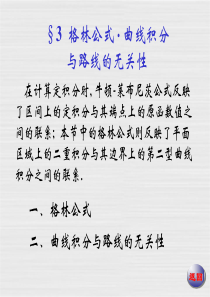 §3 格林公式·曲线积分
与路线的无关性
在计算定积分时,牛顿-莱布尼茨公式反映
了区间上的定积分与其端点上的原函数值之
间的联系;本节中的格林公式则反映了平面
区域上的二重积分与其边界上的第二型曲线
积分之间的联系.
一、格林公式
二、曲线积分与路线的无关性
返回